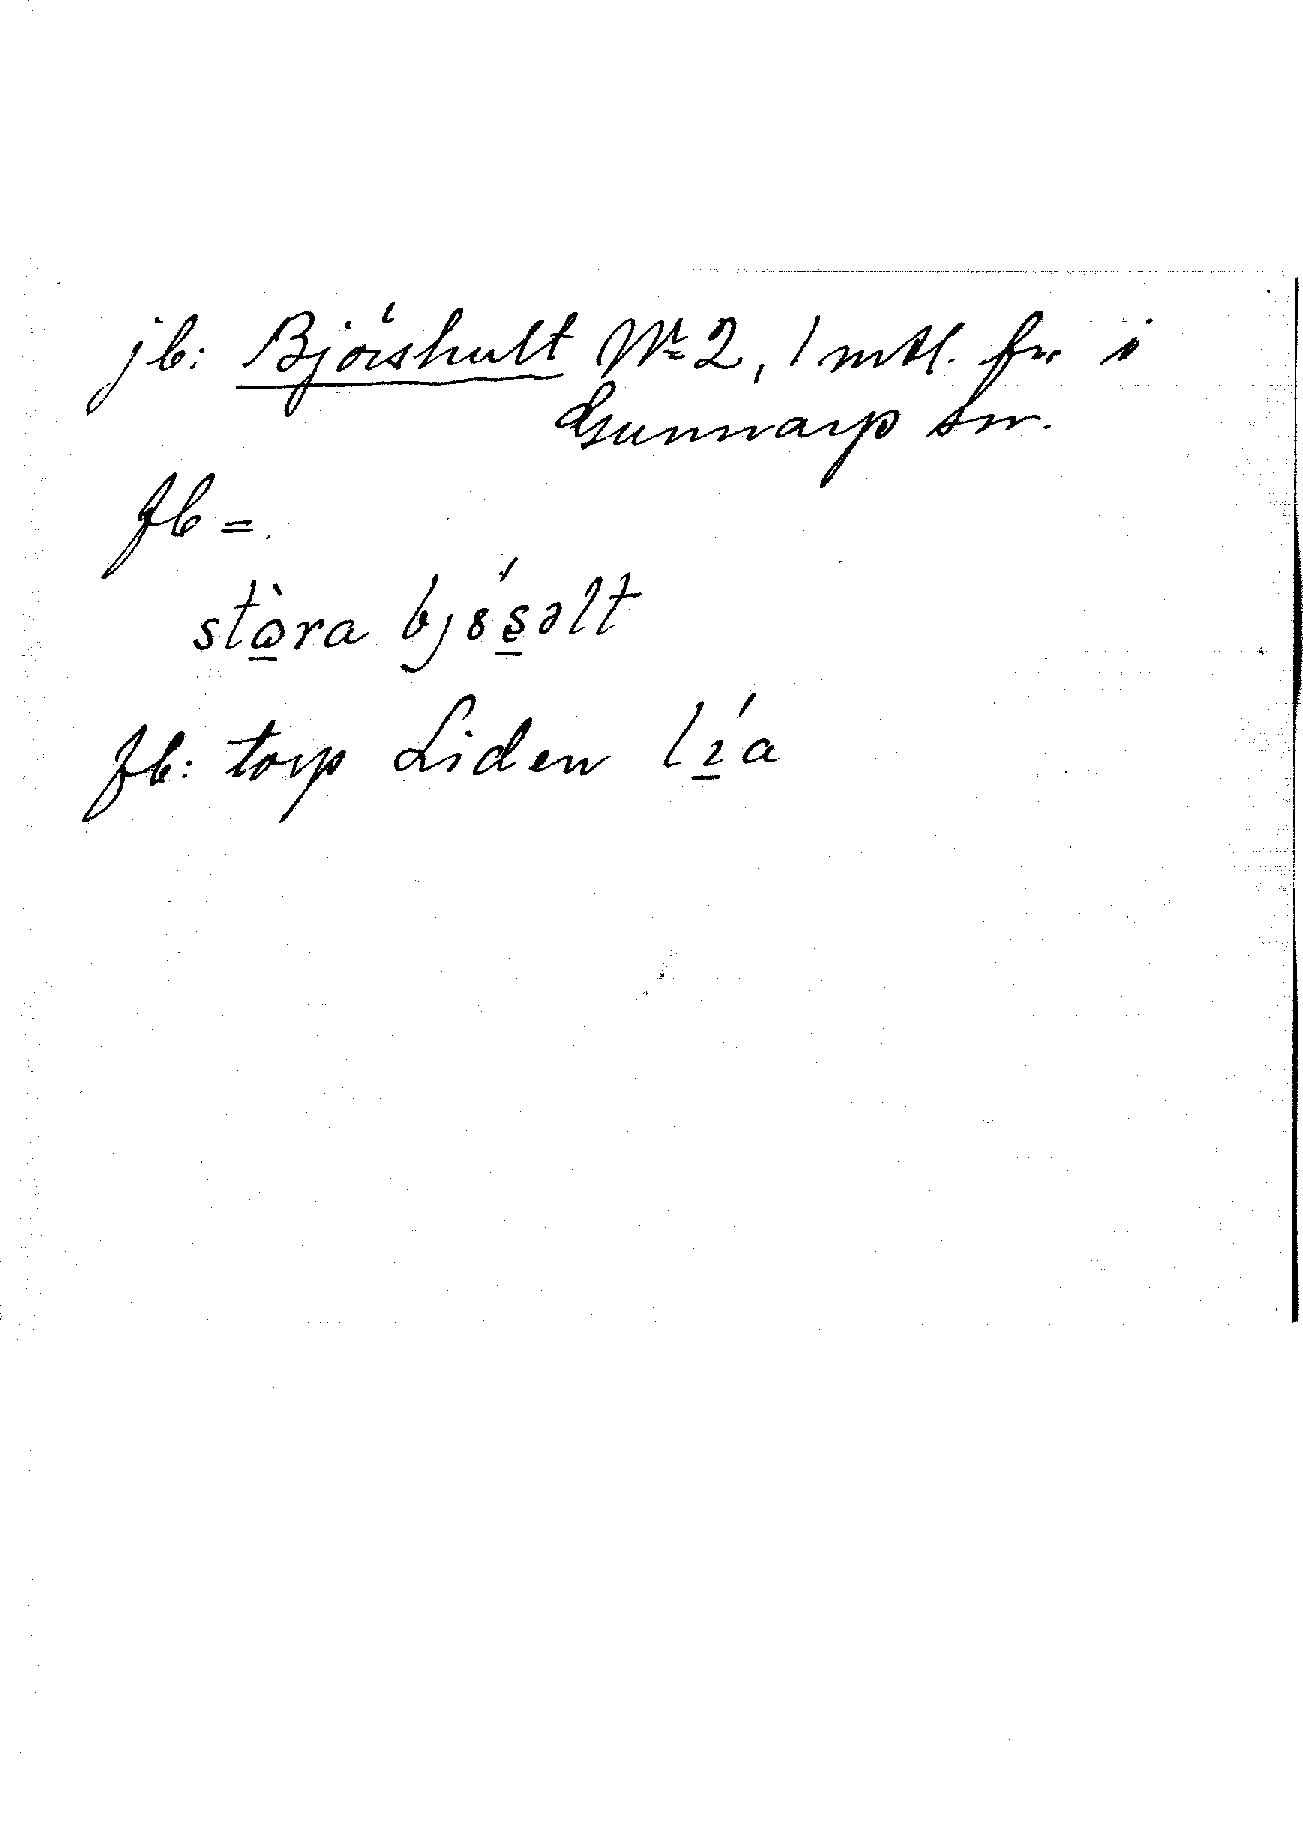 jb: Björshult Nr 2, 1 mtl. fr. i
Gunnarp sn.
fb =
stὼra bjɞ́s̠əlt
fb: torp Liden lı̠́a